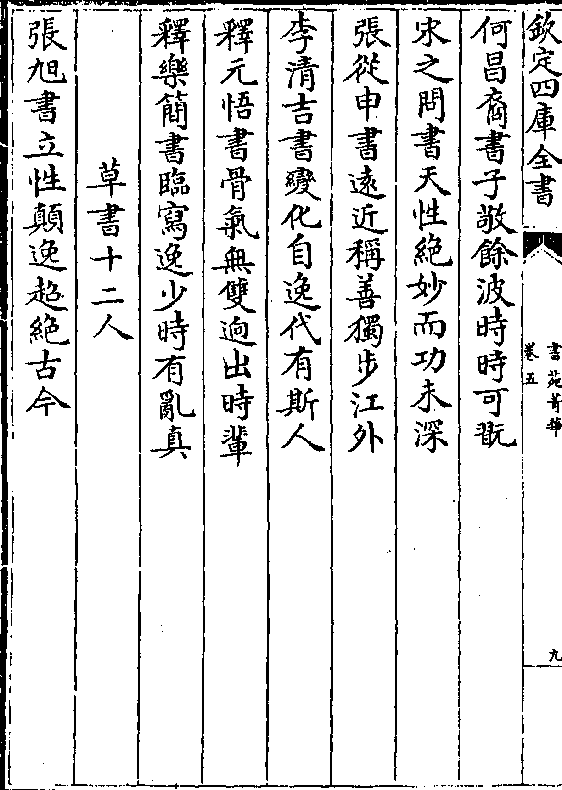 欽定四庫全書
書苑菁華
卷五
九
何昌裔書子敬餘波時時可翫
宋之問書天性絶妙而功未深
張從申書遠近稱善獨步江外
李清吉書變化自逸代有斯人
釋元悟書骨氣無雙逈出時輩
釋樂簡書臨寫逸少時有亂真
草書十二人
張旭書立性顛逸超絶古今